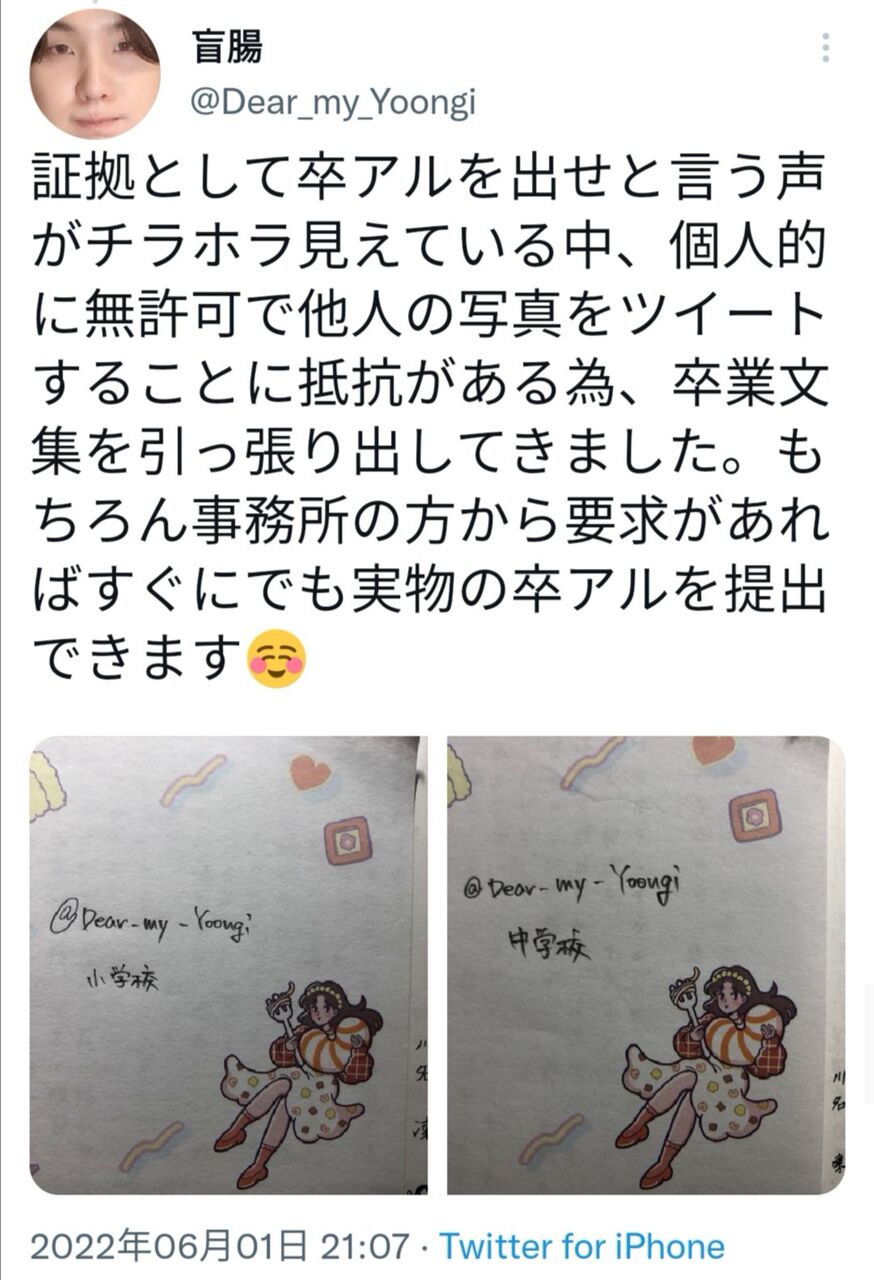 盲腸
@Dear_my_Yoongi
証拠として卒アルを出せと言う声
がチラホラ見えている中、個人的
に無許可で他人の写真をツイート
することに抵抗がある為、卒業文
集を引っ張り出してきました。も
ちろん事務所の方から要求があれ
ばすぐにでも実物の卒アルを提出
できます☺️
@Dear-my-Yoongi
小学校
@Dear-my-Yoongi
中学校
2022年06月01日 21:07 · Twitter for iPhone